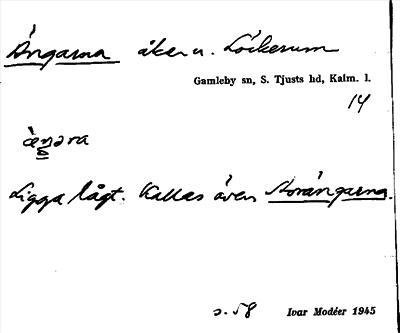 Ängarna åker u. Löckerum
Gamleby sn, S. Tjusts hd, Kalm. l.
14
Ligga lågt. Kallas även Norängarna.
s. 58 Ivar Modéer 1945